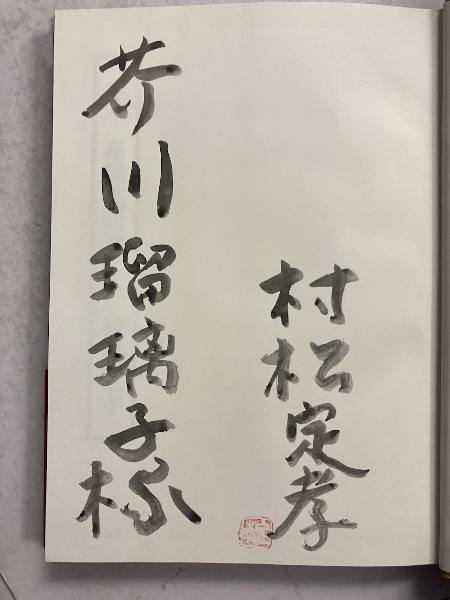 芥川瑠璃子様
村松定孝